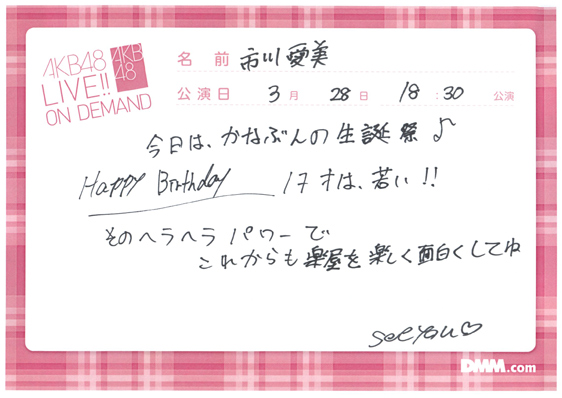 AKB48
LIVE!!
ON DEMAND
AKB
48
名前 市川愛美
公演日 3月 28日 18:30 公演
今日は、かなぶんの生誕祭♪
Happy Birthday 17才は、若い!!
そのヘラヘラパワーで
これからも楽屋を楽しく面白くしてね
see you♡
DMM.com